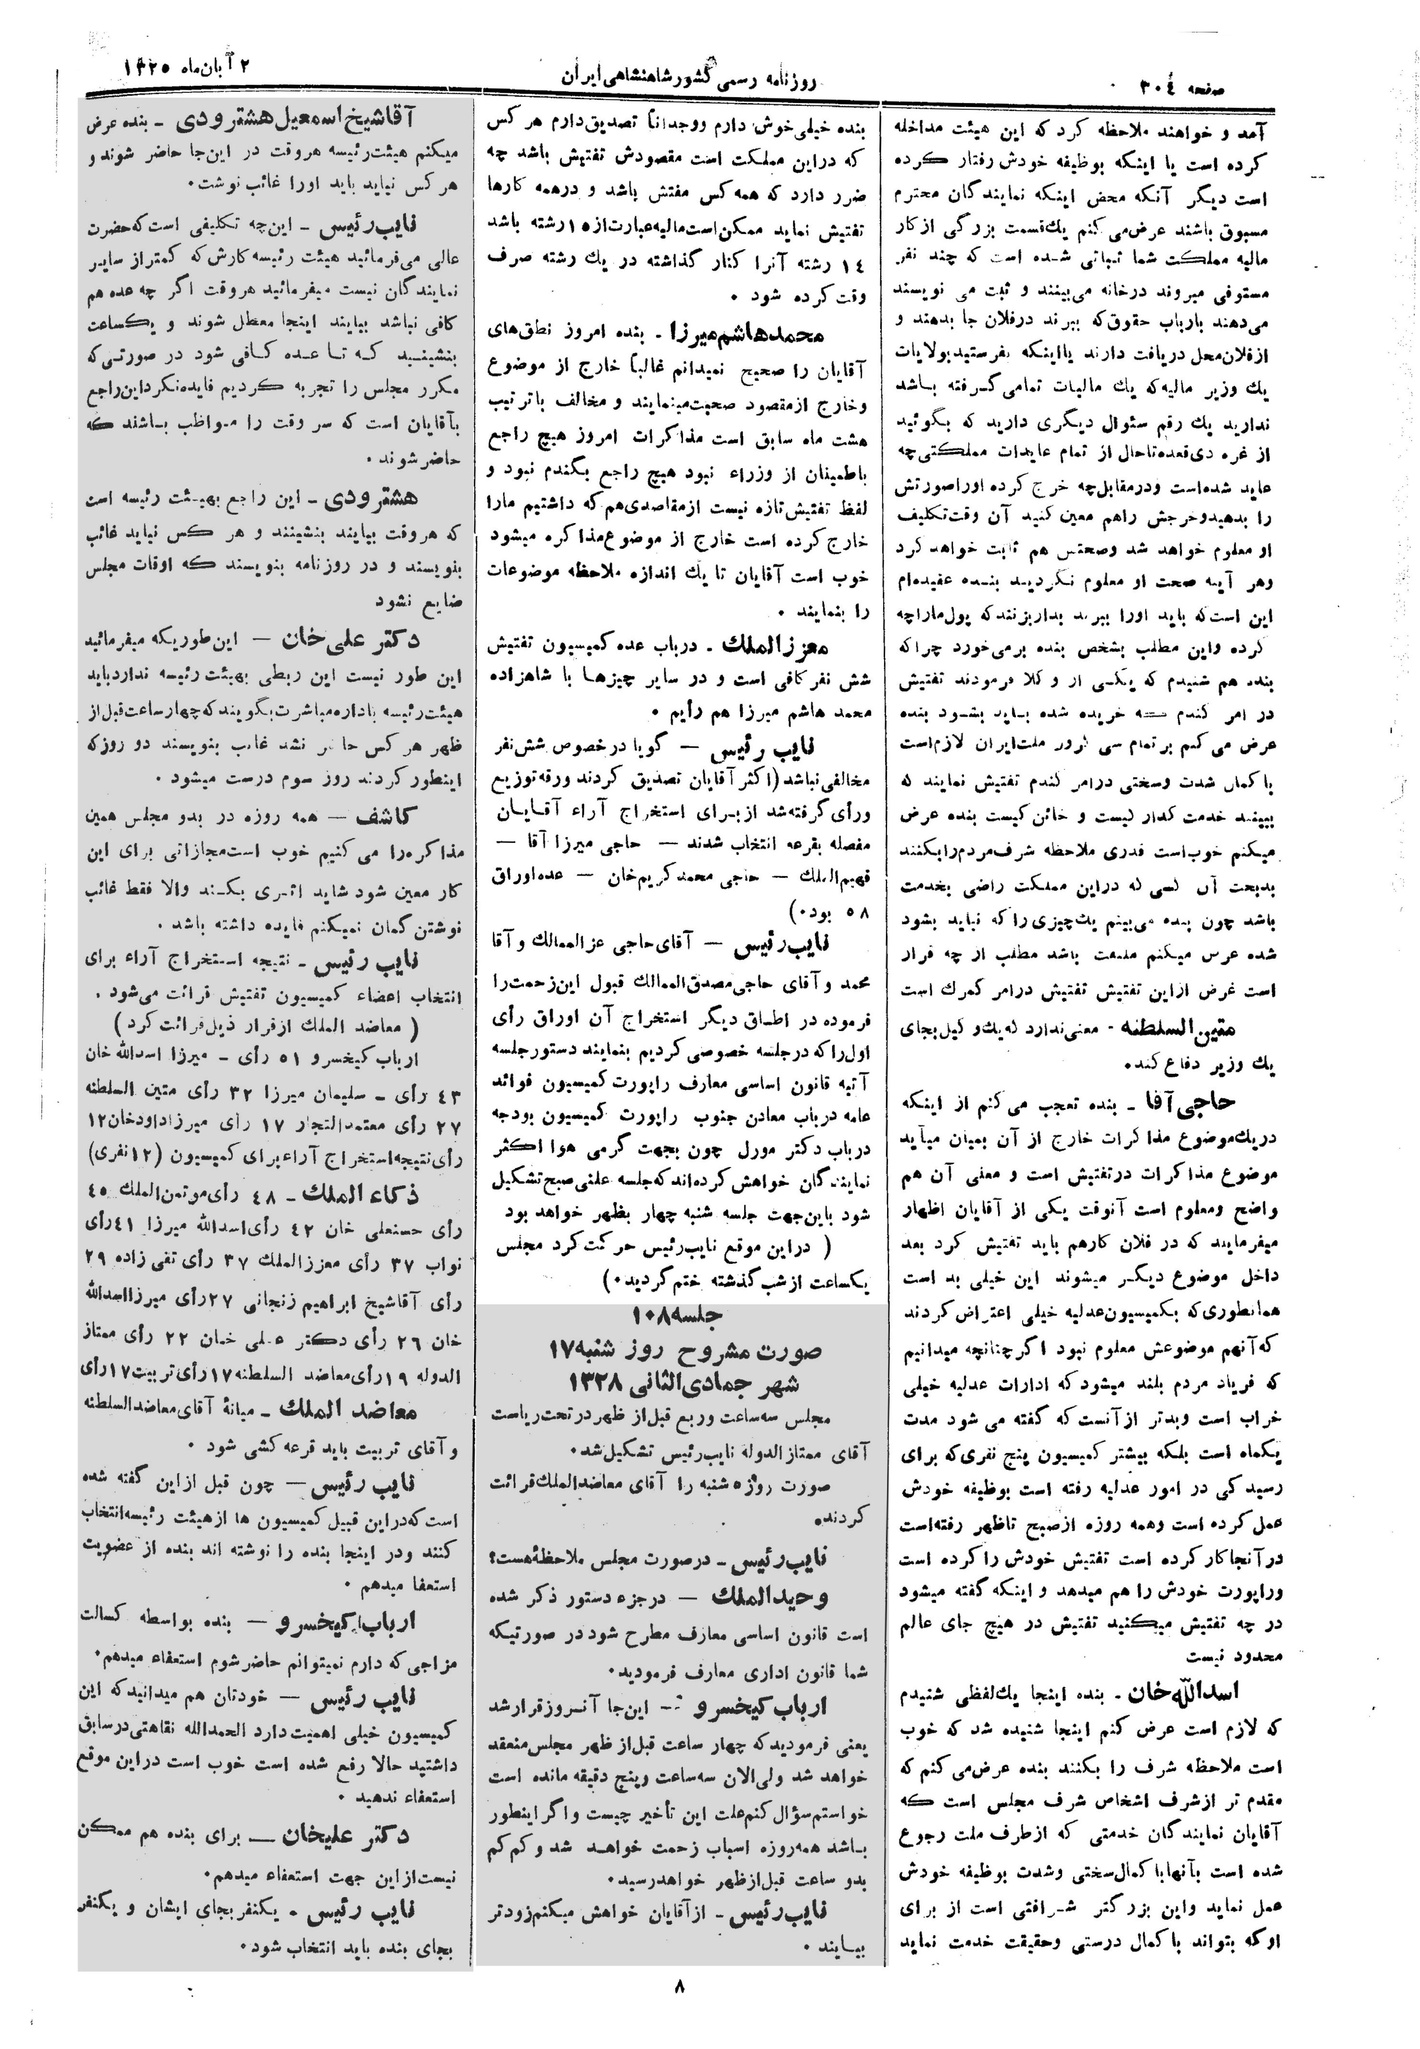 صفحه ۳۰۴
روزنامه رسمی کشور شاهنشاهی ایران
۲ آبان‌ماه ۱۳۲۵
آمد و خواهند ملاحظه کرد که این هیئت مداخله
کرده است یا اینکه بوظیفه خودش رفتار کرده
است دیگر آنکه محض اینکه نمایندگان محترم
مسبوق باشند عرض‌می کنم یك‌قسمت بزرگی ازکار
مالیه مملکت شما نباتی شده است که چند نفر
مستوفی میروند درخانه می‌بینند و ثبت می نویسند
می‌دهند بارباب حقوق‌که ببرند درفلان جا بدهند و
ازفلان‌محل دریافت دارند یااینکه بفرستید بولایات
یك وزیر مالیه‌که یك مالیات تمامی گرفته باشد
ندارید یك رقم سئوال دیگری دارید که بگوئید
از غره ذی‌قعده تاحال از تمام عایدات مملکتی‌چه
عاید شده‌است ودرمقابل‌چه خرج کرده اوراصورتش
را بدهید وخرجش راهم معین کنید آن وقت‌تکلیف
او معلوم خواهد شد وصحتش هم ثابت خواهد کرد
وهر آینه صحت او معلوم نگردید بنده عقیده‌ام
این است‌که باید اورا ببرند بداربزنند که پول‌ماراچه
کرده واین مطلب بشخص بنده برمی‌خورد چراکه
بنده هم شنیدم که یکی از وکلا فرمودند تفتیش
در امر گندم که خریده شده باید بشود بنده
عرض می کنم برتمام سی کرور ملت‌ایران لازم‌است
باکمال شدت وسختی درامر گندم تفتیش نمایند که
ببینند خدمت گذار کیست و خائن کیست بنده عرض
میکنم خوب‌است قدری ملاحظه شرف‌مردم‌رابکنند
بدبخت آن کسی که دراین مملکت راضی بخدمت
باشد چون بنده می‌بینم یك‌چیزی را که نباید بشود
شده عرض میکنم ملتفت باشد مطلب از چه قرار
است غرض ازاین تفتیش تفتیش درامر گمرك است
متین‌السلطنه - معنی‌ندارد که‌یك وکیل‌بجای
یك وزیر دفاع کند.
حاجی‌آقا - بنده تعجب می‌کنم از اینکه
دریك‌موضوع مذاکرات خارج از آن بمیان میآید
موضوع مذاکرات درتفتیش است و معنی آن هم
واضح ومعلوم است آنوقت یکی از آقایان اظهار
میفرمایند که در فلان کارهم باید تفتیش کرد بعد
داخل موضوع دیگر میشوند این خیلی بد است
همانطوری‌که بکمیسیون‌عدلیه خیلی اعتراض‌کردند
که‌آنهم موضوعش معلوم نبود اگرچنانچه میدانیم
که فریاد مردم بلند میشود که ادارات عدلیه خیلی
خراب است وبدتر از آنست که گفته می شود مدت
یکماه است بلکه بیشتر کمیسیون پنج نفری‌که برای
رسیدگی در امور عدلیه رفته است بوظیفه خودش
عمل کرده است وهمه روزه ازصبح تاظهر رفته‌است
درآنجا کار کرده است تفتیش خودش را کرده است
وراپورت خودش را هم میدهد و اینکه گفته میشود
در چه تفتیش میکنید تفتیش در هیچ جای عالم
محدود نیست
اسدالله‌خان - بنده اینجا یك‌لفظی شنیدم
که لازم است عرض کنم اینجا شنیده شد که خوب
است ملاحظه شرف را بکنند بنده عرض‌می کنم که
مقدم تر ازشرف اشخاص شرف مجلس است که
آقایان نمایندگان خدمتی که ازطرف ملت رجوع
شده است بآنهابا کمال‌سختی وشدت بوظیفه خودش
عمل نماید واین بزرگتر شرافتی است از برای
اوکه بتواند باکمال درستی وحقیقت خدمت نماید
بنده خیلی‌خوش دارم ووجداناً تصدیق‌دارم هر کس
که دراین مملکت است مقصودش تفتیش باشد چه
ضرر دارد که همه کس مفتش باشد و درهمه کارها
تفتیش نماید ممکن‌است‌مالیه‌عبارت‌از ۱۵ رشته باشد
۱۴ رشته آنرا کنار گذاشته در یك رشته صرف
وقت کرده شود .
محمدهاشم‌میرزا - بنده امروز نطق‌های
آقایان را صحیح نمیدانم غالباً خارج از موضوع
وخارج ازمقصود صحبت‌مینمایند و مخالف باترتیب
هشت ماه سابق است مذاکرات امروز هیچ راجع
باطمینان از وزراء نبود هیچ راجع بگندم نبود و
لفظ تفتیش‌تازه نیست ازمقاصدی‌هم‌که داشتیم مارا
خارج کرده است خارج از موضوع‌مذاکره میشود
خوب است آقایان تا یك اندازه ملاحظه موضوعات
را بنمایند .
معززالملك - درباب عده کمیسیون تفتیش
شش نفرکافی است و در سایر چیزها با شاهزاده
محمد هاشم میرزا هم رأیم .
نایب رئیس - گویا درخصوص شش‌نفر
مخالفی‌نباشد (اکثر آقایان تصدیق کردند ورقه توزیع
ورأی گرفته‌شد ازبرای استخراج آراء آقایان
مفصله بقرعه انتخاب شدند - حاجی میرزا آقا -
فهیم‌الملك - حاجی محمد کریم‌خان - عده‌اوراق
۵۸ بود.)
نایب‌رئیس - آقای‌حاجی عزالممالك و آقا
محمد و آقای حاجی‌مصدق‌الممالك قبول این‌زحمت‌را
فرموده در اطاق دیگر استخراج آن اوراق رأی
اول‌راکه درجلسه خصوصی کردیم بنمایند دستورجلسه
آتیه قانون اساسی معارف راپورت کمیسیون فوائد
عامه درباب معادن جنوب راپورت کمیسیون بودجه
درباب دکتر مورل چون بجهت گرمی هوا اکثر
نمایندگان خواهش کرده‌اند که‌جلسه علنی‌صبح‌تشکیل
شود باین‌جهت جلسه شنبه چهار بظهر خواهد بود
( دراین موقع نایب‌رئیس حرکت‌کرد مجلس
یکساعت ازشب‌گذشته ختم گردید.)
جلسه ۱۰۸
صورت مشروح روز شنبه ۱۷
شهر جمادی‌الثانی ۱۳۲۸
مجلس سه‌ساعت وربع قبل‌از ظهر درتحت‌ریاست
آقای ممتازالدوله نایب‌رئیس تشکیل‌شد.
صورت روز ۵ شنبه را آقای معاضدالملك قرائت
کردند.
نایب‌رئیس - درصورت مجلس ملاحظهٔ هست؟
وحیدالملك - درجزء دستور ذکر شده
است قانون اساسی معارف مطرح شود در صورتیکه
شما قانون اداری معارف فرمودید.
ارباب کیخسرو - این‌جا آنروز قرارشد
یعنی فرمودید که چهار ساعت قبل‌از ظهر مجلس‌منعقد
خواهد شد ولی‌الان سه‌ساعت وپنج دقیقه مانده است
خواستم‌سؤال کنم‌علت این تأخیر چیست و اگر اینطور
باشد همه‌روزه اسباب زحمت خواهد شد و کم کم
بدو ساعت قبل‌ازظهر خواهدرسید.
نایب‌رئیس - ازآقایان خواهش میکنم‌زودتر
بیایند .
آقاشیخ اسمعیل هشترودی - بنده عرض
میکنم هیئت‌رئیسه هروقت در این‌جا حاضر شوند و
هرکس نیاید باید اورا غائب نوشت.
نایب‌رئیس - این‌چه تکلیفی است‌که‌حضرت
عالی می‌فرمائید هیئت رئیسه کارش‌که کمتراز سایر
نمایندگان نیست میفرمائید هروقت اگر چه عده هم
کافی نباشد بیایند اینجا معطل شوند و یکساعت
بنشینید که تا عده کافی شود در صورتی‌که
مکرر مجلس را تجربه کردیم فایده‌نکرد این‌راجع
بآقایان است که سر وقت را مواظب باشند که
حاضرشوند .
هشترودی - این راجع بهیئت رئیسه است
که هروقت بیایند بنشینند و هر کس نیاید غائب
بنویسند و در روزنامه بنویسند که اوقات مجلس
ضایع نشود
دکتر علی‌خان - این‌طوریکه میفرمائید
این طور نیست این ربطی بهیئت رئیسه ندارد باید
هیئت‌رئیسه باداره‌مباشرت‌بگویند که‌چهارساعت‌قبل‌از
ظهر هرکس حاضر نشد غایب بنویسند دو روزکه
اینطورکردند روز سوم درست میشود .
کاشف - همه روزه در بدو مجلس همین
مذاکره‌را می کنیم خوب است‌مجازاتی برای این
کار معین شود شاید اثری بکند والا فقط غائب
نوشتن گمان نمیکنم فایده داشته باشد .
نایب رئیس - نتیجه استخراج آراء برای
انتخاب اعضاء کمیسیون تفتیش قرائت می‌شود .
( معاضد الملك ازقرار ذیل‌قرائت‌کرد )
ارباب کیخسرو ۵۱ رأی - میرزا اسدالله خان
۴۳ رأی - سلیمان میرزا ۳۲ رأی متین السلطنه
۲۷ رأی معتمدالتجار ۱۷ رأی میرزاداودخان ۱۲
رأی‌نتیجه‌استخراج آراءبرای کمیسیون (۱۲نفری)
ذکاء الملك - ۴۸ رأی‌موتمن‌الملك ۴۵
رأی حسنعلی خان ۴۲ رأی‌اسدالله میرزا ۴۱رأی
نواب ۳۷ رأی معززالملك ۳۷ رأی تقی زاده ۲۹
رأی آقاشیخ ابراهیم زنجانی ۲۷رأی میرزااسدالله
خان ۲۶ رأی دکتر علی خان ۲۲ رأی ممتاز
الدوله ۱۹رأی‌معاضد السلطنه ۱۷رأی‌تربیت ۱۷رأی
معاضد الملك - میانهٔ آقای‌معاضدالسلطنه
و آقای تربیت باید قرعه‌کشی شود .
نایب رئیس - چون قبل ازاین گفته شده
است‌که‌دراین قبیل کمیسیون ها ازهیئت رئیسه‌انتخاب
کنند ودر اینجا بنده را نوشته اند بنده از عضویت
استعفا میدهم .
ارباب کیخسرو - بنده بواسطه کسالت
مزاجی‌که دارم نمیتوانم حاضرشوم استعفاء میدهم.
نایب رئیس - خودتان هم میدانیدکه این
کمیسیون خیلی اهمیت دارد الحمدالله نقاهتی درسابق
داشتید حالا رفع شده است خوب است دراین موقع
استعفاء ندهید .
دکتر علیخان - برای بنده هم ممکن
نیست‌ازاین جهت استعفاء میدهم.
نایب رئیس - یکنفربجای ایشان و یکنفر
بجای بنده باید انتخاب شود.
۸